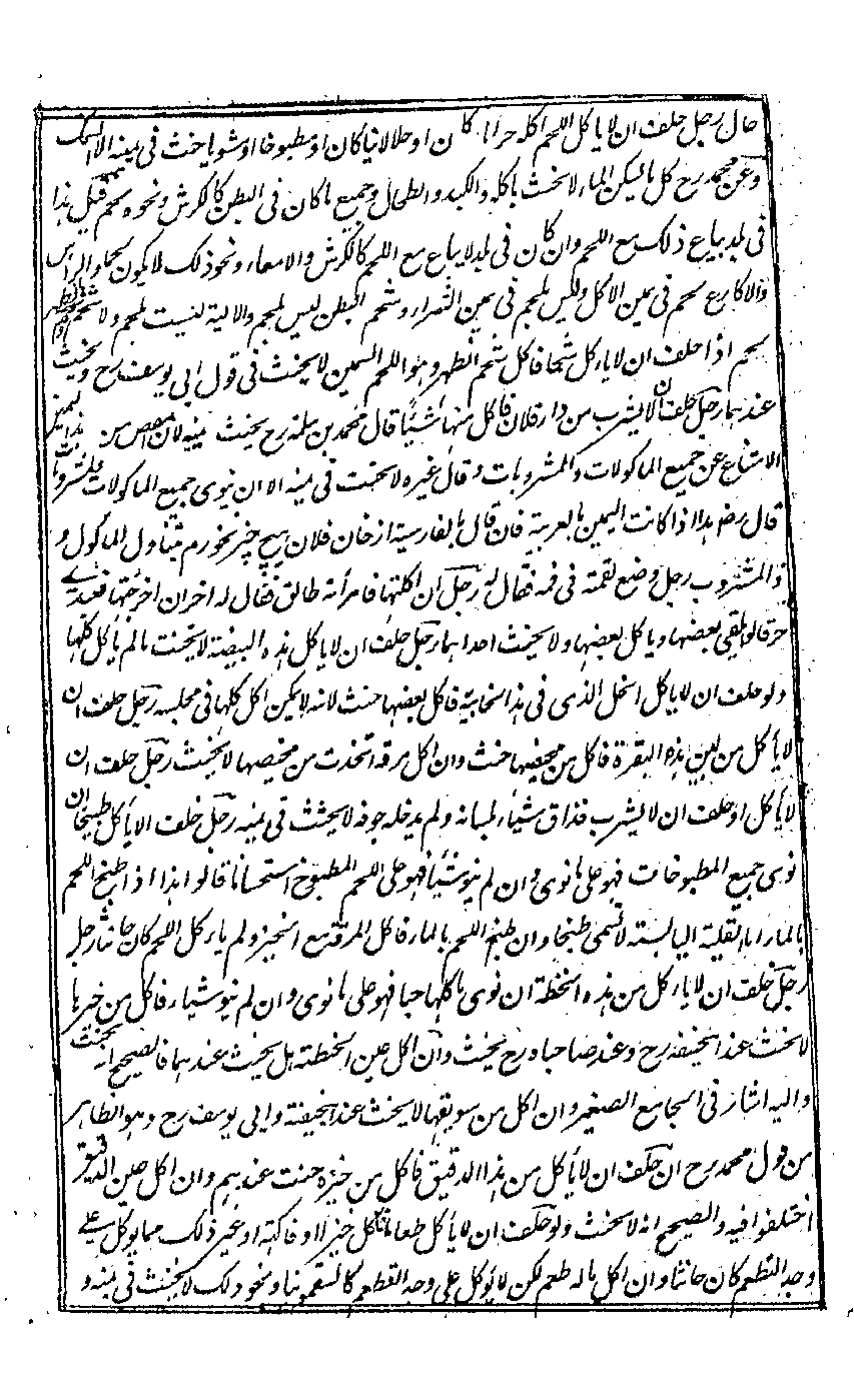 حال رجل حلف ان لا ياكل اللحم اكله حراما كان او حلالا نيا كان او مطبوخا او مشويا حنث فى يمينه الا السمك
وعن محمد رح كل ما يسكن الماء لا يحنث باكله والكبد والطحال وجميع ما كان فى البطن كالكرش ونحوه لحم قيل هذا
فى بلد يباع ذلك مع اللحم وان كان فى بلد لا يباع مع اللحم كالكرش والامعاء ونحو ذلك لا يكون لحما والراس
والاكارع لحم فى يمين الاكل وليس بلحم فى يمين الشراء وشحم البطن ليس بلحم والالية ليست بلحم ولا شحم وشحم الظهر
لحم اذا حلف ان لا ياكل شحما فاكل شحم الظهر وهو اللحم السمين لا يحنث فى قول ابى يوسف رح ويحنث
عندهما رجل حلف ان لا يشرب من دار فلان فاكل منها شيئا قال محمد بن سلمة رح يحنث يمينه لان من هذا اليمين
الامتناع عن جميع الماكولات والمشروبات وقال غيره لا يحنث فى يمينه الا ان نوى جميع الماكولات والمشروبات
قال رضه هذا اذا كانت اليمين بالعربية فان قال بالفارسية ازخان فلان هيچ چيز نخورم يتناول الماكول و
والمشروب رجل وضع لقمة فى فمه فقال له رجل ان اكلتها فامرأته طالق فقال له اخر ان اخرجتها فعبدى
حر قالوا يلقى بعضها وياكل بعضها ولا يحنث احدهما رجل حلف ان لا ياكل هذه البيضة لا يحنث ما لم ياكل كلها
ولو حلف ان لا ياكل الخل الذى فى هذا الخابية فاكل بعضها حنث لانه لا يمكن اكل كلها فى مجلسه رجل حلف ان
لا ياكل من لبن هذه البقرة فاكل من مخيضها حنث وان اكل مرقة اتخذت من مخيضها لا يحنث رجل حلف ان
لا ياكل او حلف ان لا يشرب فذاق شيئا بلسانه ولم يدخله جوفه لا يحنث فى يمينه رجل حلف الا ياكل طبيخا ان
نوى جميع المطبوخات فهو على ما نوى وان لم ينو شيئا فهو على اللحم المطبوخ استحسانا قالوا هذا اذا طبخ اللحم
بالماء اما القلية اليابسة لا تسمى طبخا وان طبخ اللحم بالماء فاكل المرقة مع الخبز ولم ياكل اللحم كان حانثا رجل
رجل حلف ان لا ياكل من هذه الحنطة ان نوى ياكلها حبا فهو على ما نوى وان لم ينو شيئا فاكل من خبزها
لا يحنث عند ابحنيفة رح وعند صاحباه رح يحنث وان اكل عين الحنطة هل يحنث عندهما فالصحيح انه يحنث
واليه اشار فى الجامع الصغير وان اكل من سويقها لا يحنث عند ابحنيفة وابى يوسف رح وهو الظاهر
من قول محمد رح ان حلف ان لا ياكل من هذا الدقيق فاكل من خبزه حنث عندهم وان اكل عين الدقيق
اختلفوا فيه والصحيح انه لا يحنث ولو حلف ان لا ياكل طعاما فاكل خبزا او فاكهة او غير ذلك مما يوكل على
وجه التطعم كان حانثا وان اكل ما له طعم لكن لا يوكل على وجه التطعم كالسقمونيا ونحو ذلك لا يحنث فى يمينه و